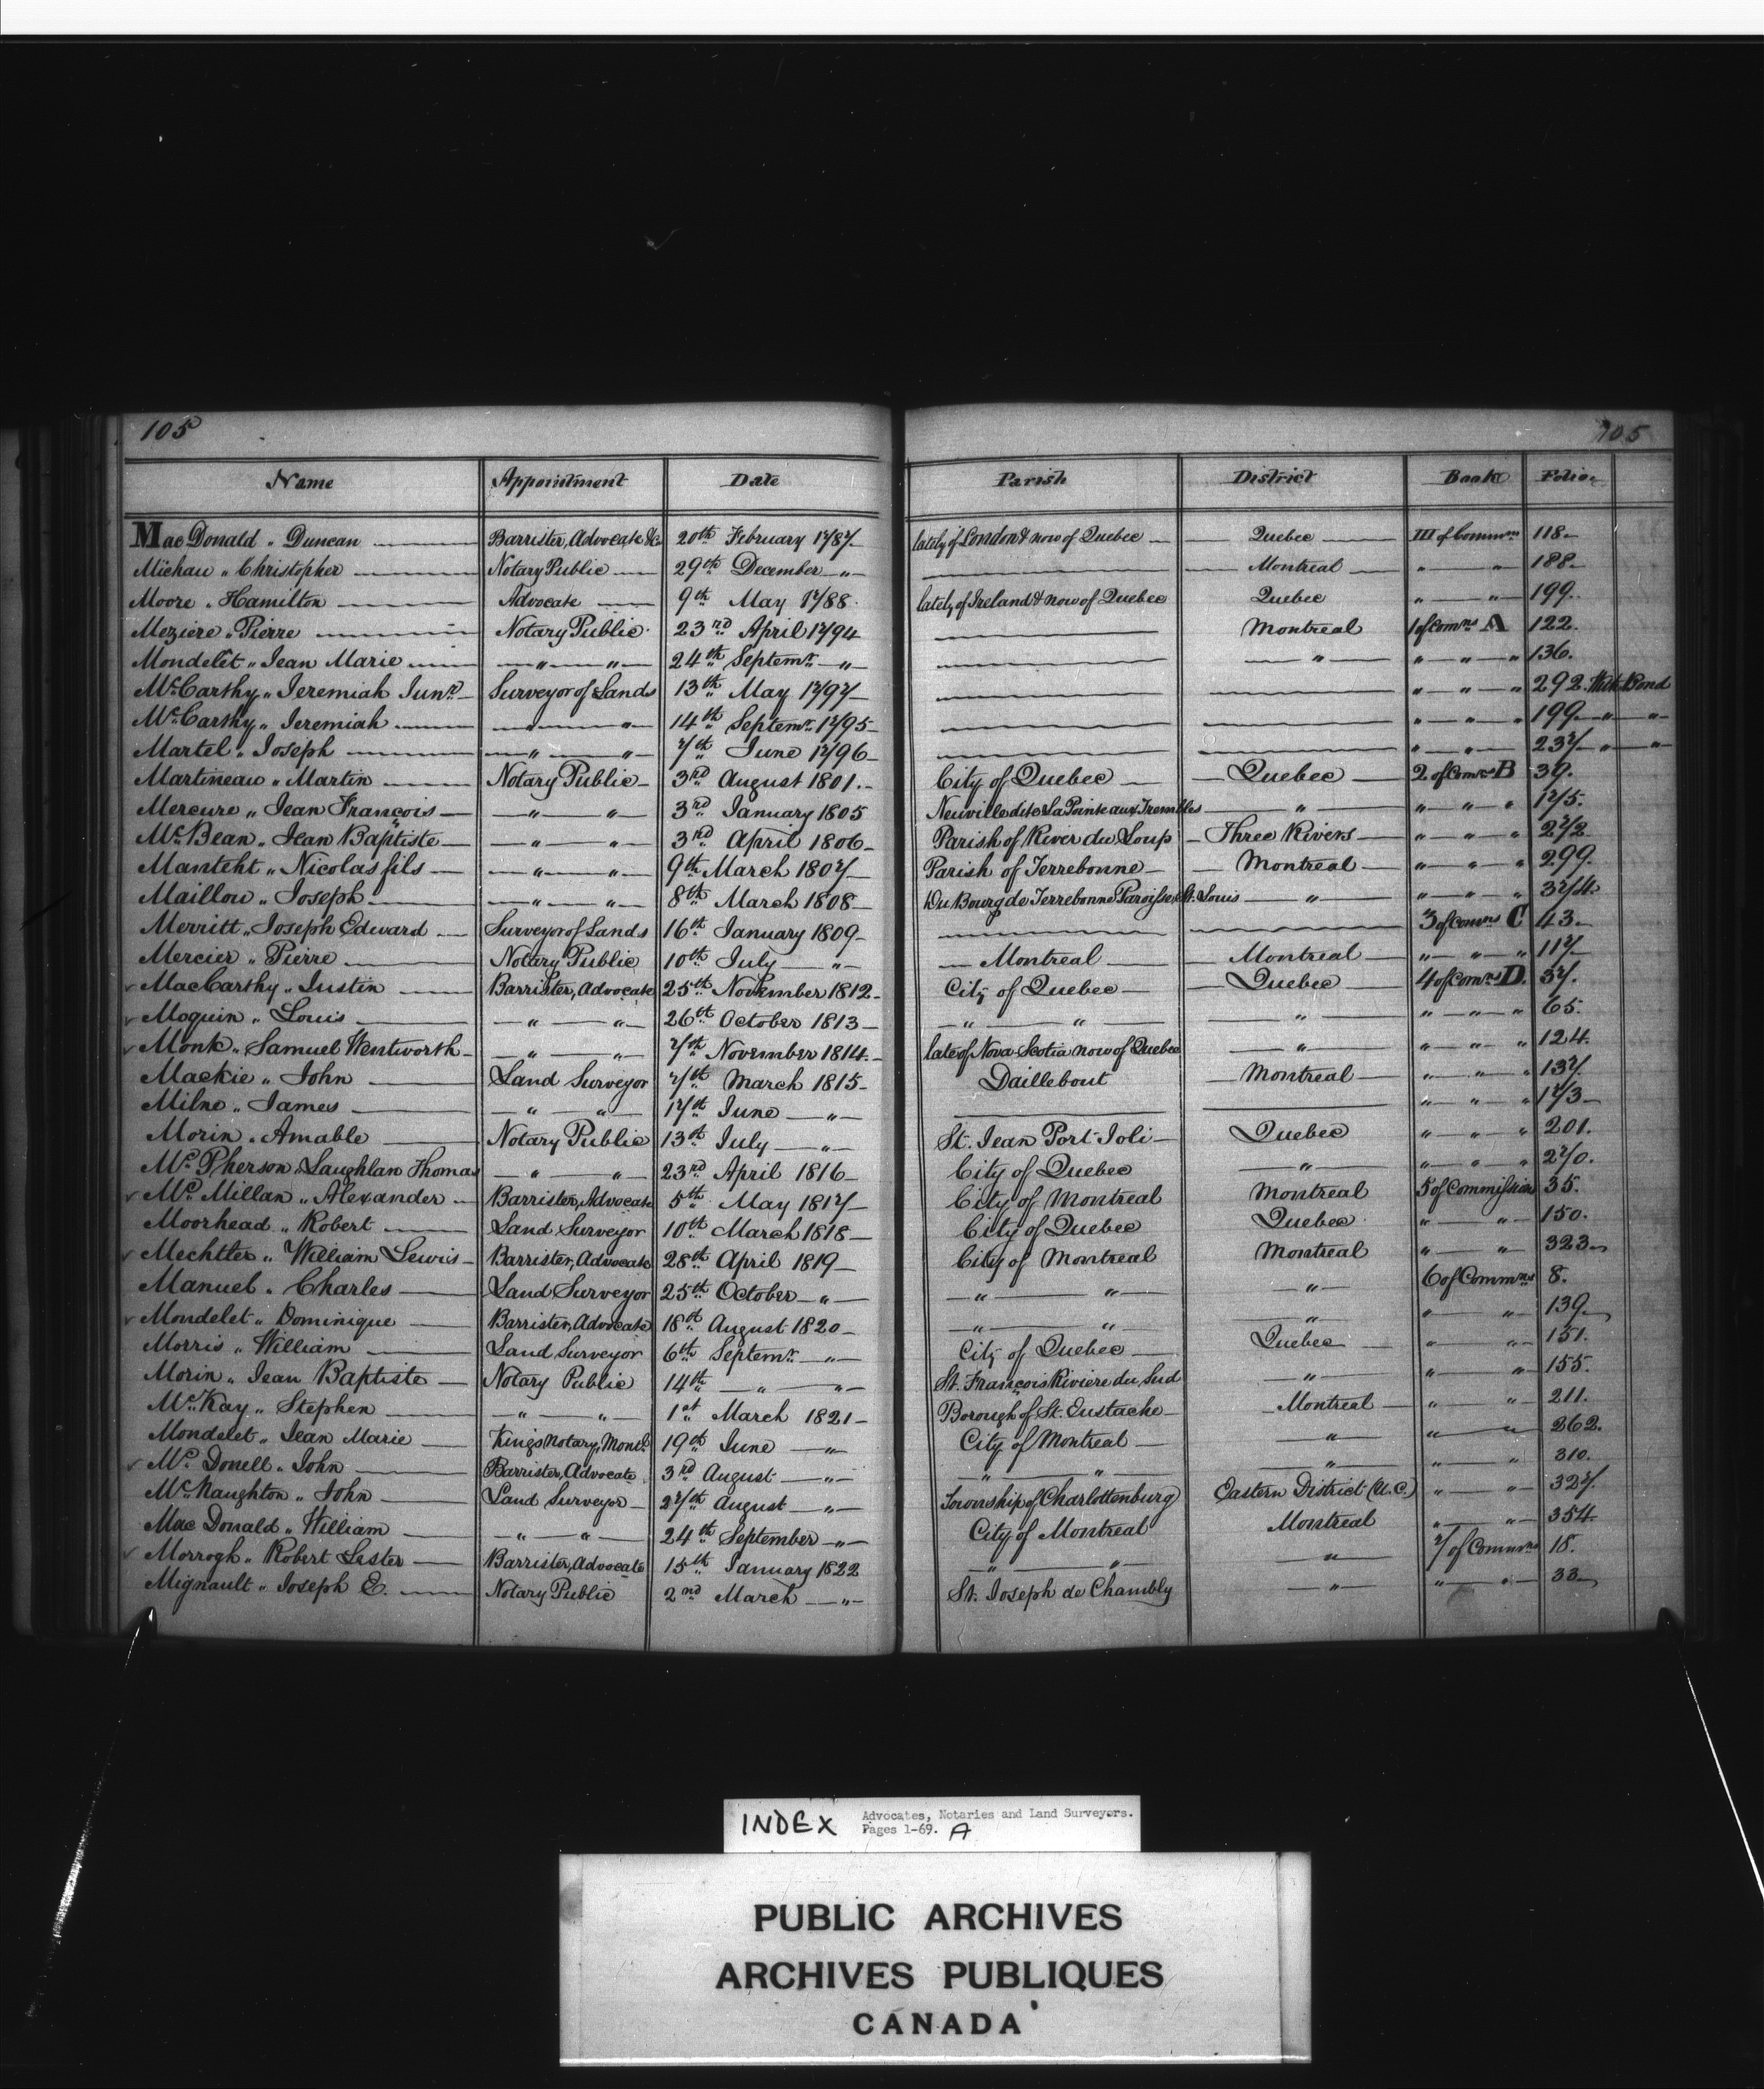 105 105
Name Appointment Date Parish District Book Folio
MacDonald „ Duncan Barrister, Advocate &c 20th February 1787 lately of London & now of Quebec Quebec III of Commns 118
Michau „ Christopher Notary Public 29th December „ Montreal „ „ 188
Moore „ Hamilton Advocate 9th May 1788 lately of Ireland & now of Quebec Quebec „ „ 199.
Meziere „ Pierre Notary Public 23rd April 1794 Montreal 1 of Comns A 122.
Mondelêt „ Jean Marie „ „ 24th Septemr „ „ „ „ „ 136.
Mc.Carthy „ Jeremiah Junr Surveyor of Lands 13th May 1797 „ „ „ 292. With Bond
Mc.Carthy „ Jeremiah „ „ 14th Septemr 1795 „ „ „ 199 „ „
Martel „ Joseph „ „ 7th June 1796 „ „ 237 „ „
Martineau „ Martin Notary Public 3rd August 1801. City of Quebec Quebec 2 of Comns B 39.
Mercure „ Jean François „ „ 3rd January 1805 Neuville dite La Pointe aux Trembles „ „ „ „ 175.
Mc.Bean „ Jean Baptiste „ „ 3rd April 1806 Parish of River du Loup Three Rivers „ „ „ 272
Manteht „ Nicolas fils „ „ 9th March 1807 Parish of Terrebonne Montreal „ „ „ 299.
Maillou „ Joseph „ „ 8th March 1808 Du Bourg de Terrebonne Paroisse St. Louis „ „ „ „ 374.
Merritt „ Joseph Edward Surveyor of Lands 16th January 1809 3 of Comns C 43
Mercier „ Pierre Notary Public 10th July „ Montreal Montreal „ „ „ 117.
MacCarthy „ Justin Barrister, Advocate 25th November 1812 City of Quebec Quebec 4 of Comns D. 37.
Moquin „ Louis „ „ 26th October 1813 „ „ „ „ „ „ 65.
Monk „ Samuel Wentworth „ „ 7th November 1814. late of Nova Scotia now of Quebec „ „ „ „ 124.
Mackie „ John Land Surveyor 7th March 1815 Daillebout Montreal „ „ „ 137.
Milne „ James „ „ 17th June „ „ „ „ 173
Morin „ Amable Notary Public 13th July „ St. Jean Port Joli Quebec „ „ „ 201.
Mc.Pherson „ Laughlan Thomas „ „ 23rd April 1816 City of Quebec „ „ „ „ 270.
Mc.Millan „ Alexander Barrister, Advocate 5th May 1817 City of Montreal Montreal 5 of Commissions 35.
Moorhead „ Robert Land Surveyor 10th March 1818 City of Quebec Quebec „ „ 150.
Mechtler „ William Lewis Barrister, Advocate 28th April 1819 City of Montreal Montreal „ „ 323
Manuel „ Charles Land Surveyor 25th October „ „ „ „ 6 of Commns 8.
Mondelet „ Dominique Barrister, Advocate 18th August 1820 „ „ „ „ „ 139
Morris „ William Land Surveyor 6th Septemr „ City of Quebec Quebec „ „ 151.
Morin „ Jean Baptiste Notary Public 14th „ „ St. François Riviere du Sud „ „ „ 155.
Mc.Kay „ Stephen „ „ 1st March 1821 Borough of St. Eustache Montreal „ „ 211.
Mondelet „ Jean Marie Kings Notary, Montl. 19th June „ City of Montreal „ „ „ 262.
Mc.Donell „ John Barrister, Advocate 3rd August „ „ „ „ „ „ 310.
Mc.Naughton „ John Land Surveyor 27th August „ Township of Charlottenburg Eastern District (U.C.) „ „ 327.
Mac Donald „ William „ „ 24th September „ City of Montreal Montreal „ „ 354
Morrogh „ Robert Lester Barrister, Advocate 15th January 1822 „ „ „ 7 of Commns 18.
Mignault „ Joseph E. Notary Public 2nd March „ St. Joseph de Chambly „ „ „ 33
INDEX Advocates, Notaries and Land Surveyors.
Pages 1-69. A
PUBLIC ARCHIVES
ARCHIVES PUBLIQUES
CANADA